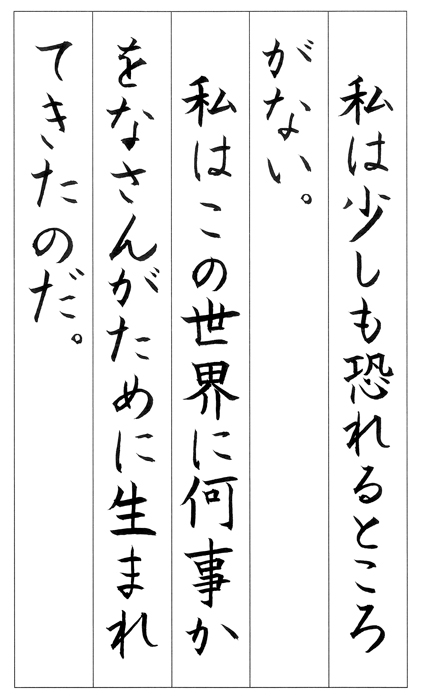 私は少しも恐れるところ
がない。
私はこの世界に何事か
をなさんがために生まれ
てきたのだ。